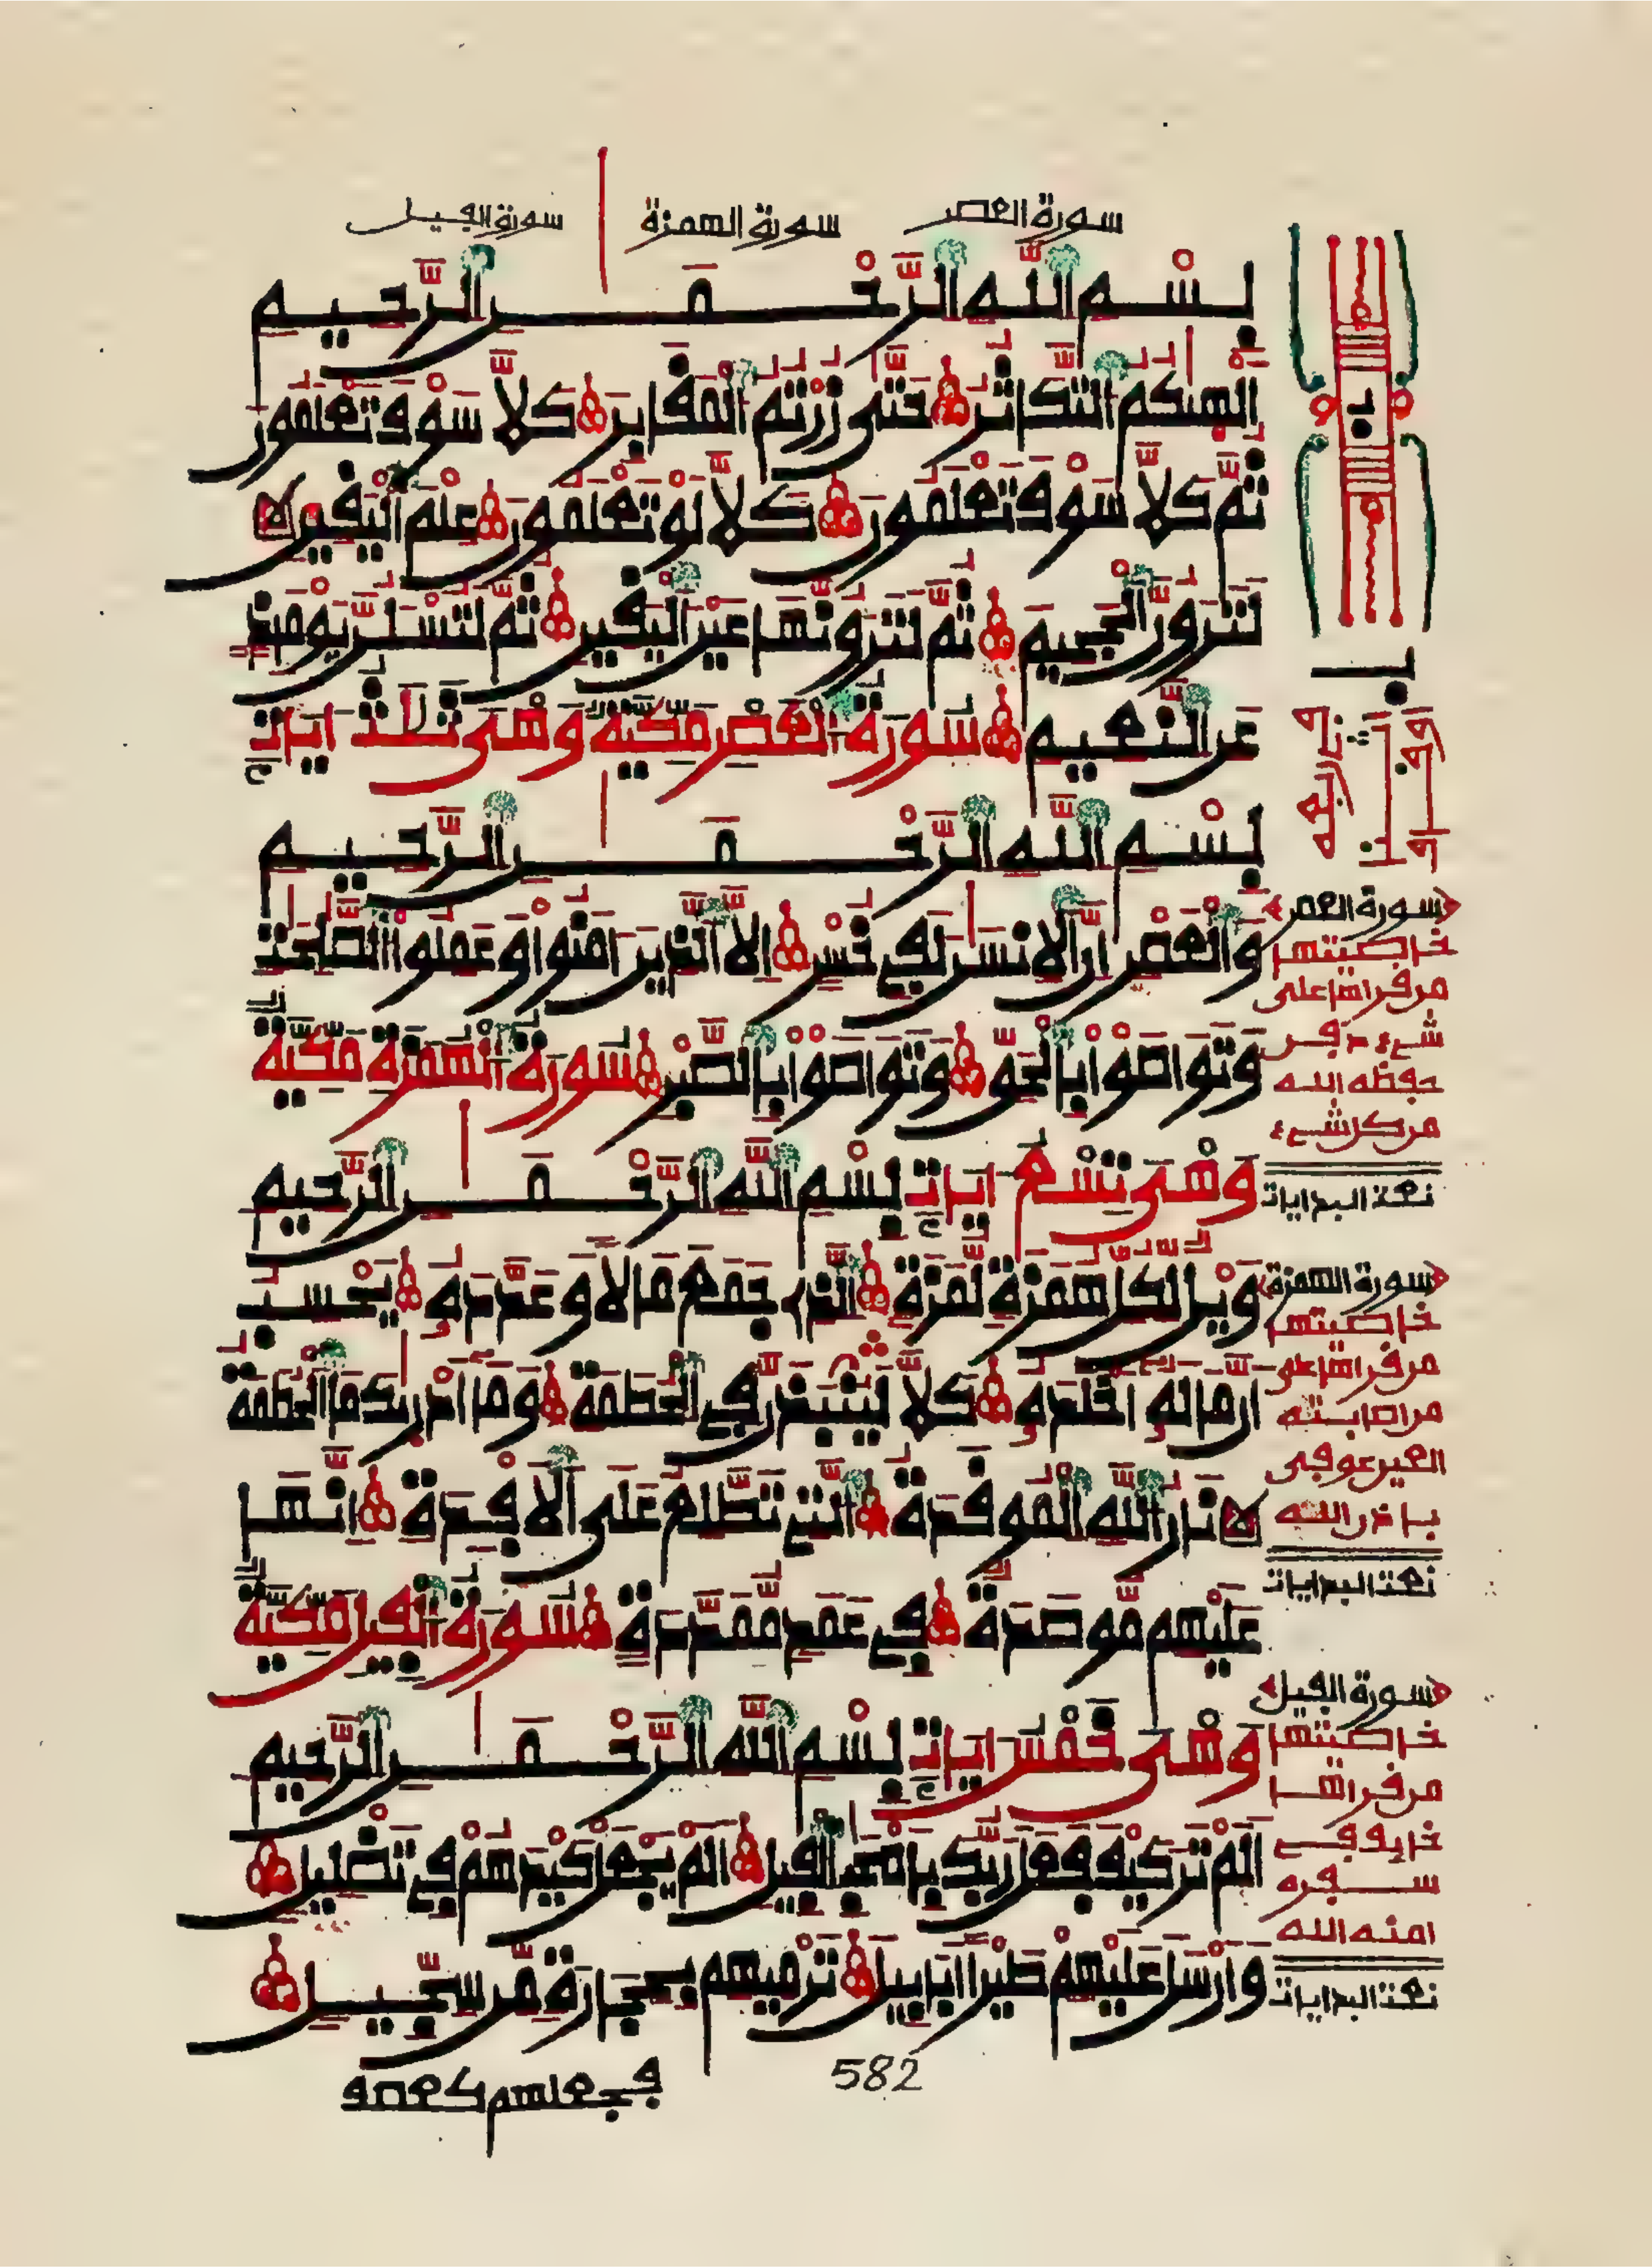 سورة العصر
سورة الهمزة
سورة الفيل
بسم الله الرحمن الرحيم
الهيكم التكاثر حتى زرتم المقابر كلا سوف تعلمون
ثم كلا سوف تعلمون كلا لو تعلمون علم اليقين
لترون الجحيم ثم لترونها عين اليقين ثم لتسئلن يومئذ
عن النعيم سورة العصر مكية وهى ثلاث ايات
بسم الله الرحمن الرحيم
والعصر ان الانسن لفى خسر الا الذين امنوا وعملوا الصلحت
وتواصوا بالحق وتواصوا بالصبر سورة الهمزة مكية
وهى تسع ايات بسم الله الرحمن الرحيم
ويل لكل همزة لمزة الذى جمع مالا وعدده يحسب
ان ماله اخلده كلا لينبذن فى الحطمة وما ادريك ما الحطمة
نار الله الموقدة التى تطلع على الافدة انها
عليهم موصدة فى عمد ممددة سورة الفيل مكية
وهى خمس ايات بسم الله الرحمن الرحيم
الم تر كيف فعل ربك باصحب الفيل الم يجعل كيدهم فى تضليل
وارسل عليهم طيرا ابابيل ترميهم بحجارة من سجيل
فجعلهم كعصف
582
سورة العصر
خاصيتها
من قراها على
شىء دفن
حفظه الله
من كل شىء
نعت البدايات
سورة الهمزة
خاصيتها
من قراها على
من اصابته
العين عوفى
باذن الله
نعت البدايات
سورة الفيل
خاصيتها
من قراها
خايف فى
سفره
امنه الله
نعت البدايات